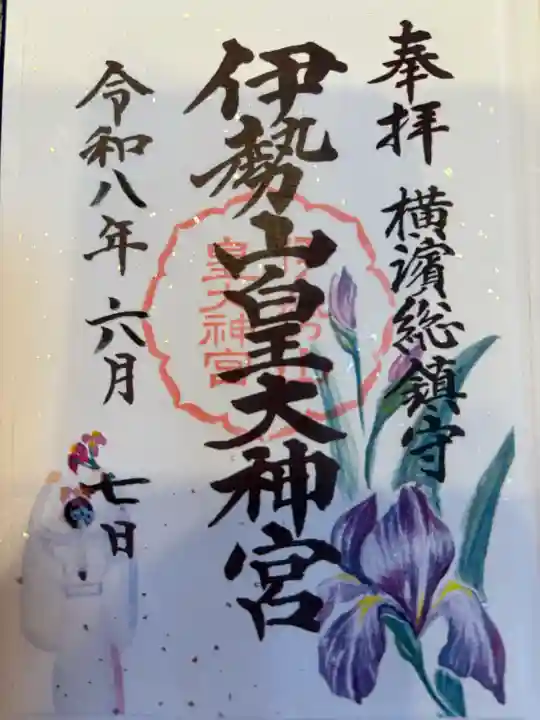 奉拝 横濱総鎮守
伊勢山皇大神宮
令和八年 六月 七日
伊勢山
皇大神宮